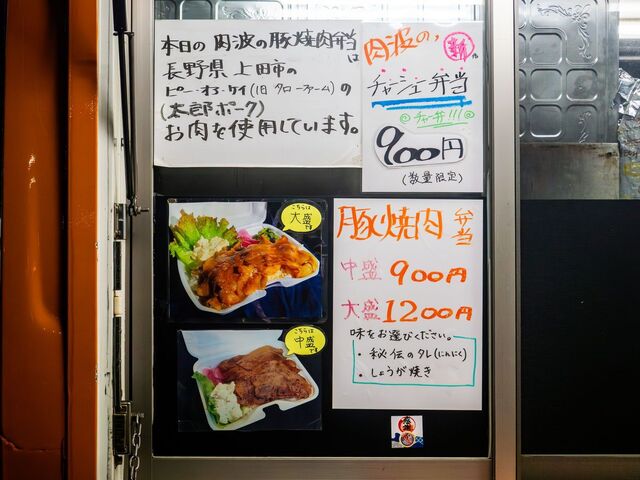 本日の肉波の豚焼肉弁当は
長野県上田市の
ピー・オブ・ケイ(旧タローファーム)の
(太郎ポーク)
お肉を使用しています。
肉波の、
チャーシュー弁当
◎チャー弁!!!◎
900円
(数量限定)
こちらは
大盛
です
こちらは
中盛
です
豚焼肉弁当
中盛 900円
大盛 1200円
味をお選びください。
・秘伝のタレ(にんにく)
・しょうが焼き